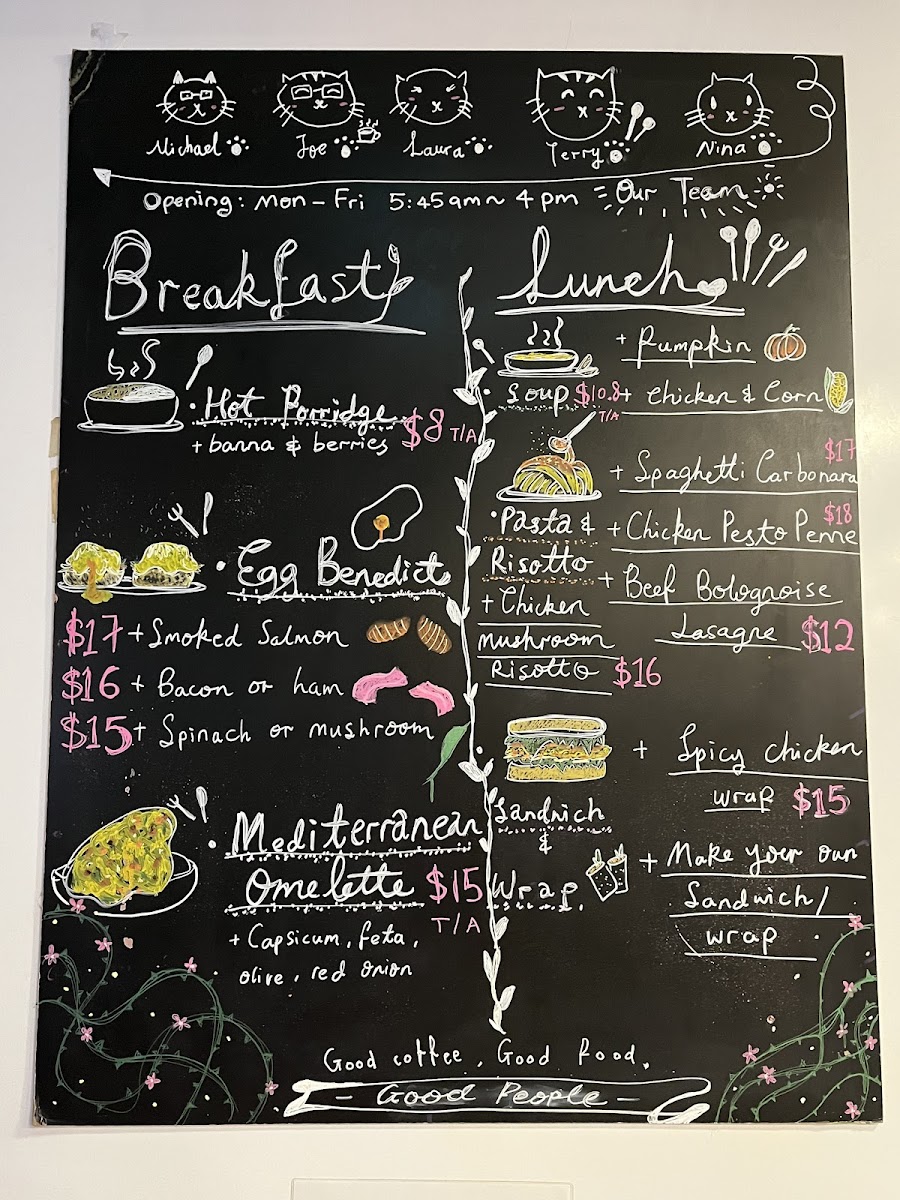 Michael Joe Laura Terry Nina
Opening: Mon - Fri 5:45am ~ 4pm Our Team
Breakfast
• Hot Porridge
+ banna & berries $8 T/A
• Egg Benedict
$17 + Smoked Salmon
$16 + Bacon or ham
$15 + Spinach or mushroom
• Mediterranean
Omelette $15
T/A
+ Capsicum, feta,
olive, red onion
Lunch
Soup $10.8
T/A
+ Pumpkin
+ Chicken & Corn
• Pasta &
Risotto
+ Chicken
mushroom
Risotto $16
$17
+ Spaghetti Carbonara
$18
+ Chicken Pesto Penne
+ Beef Bolognoise
Lasagne $12
Sandwich
&
Wrap.
+ Spicy chicken
wrap $15
+ Make your own
Sandwich/
wrap
Good coffee, Good food,
- Good People -